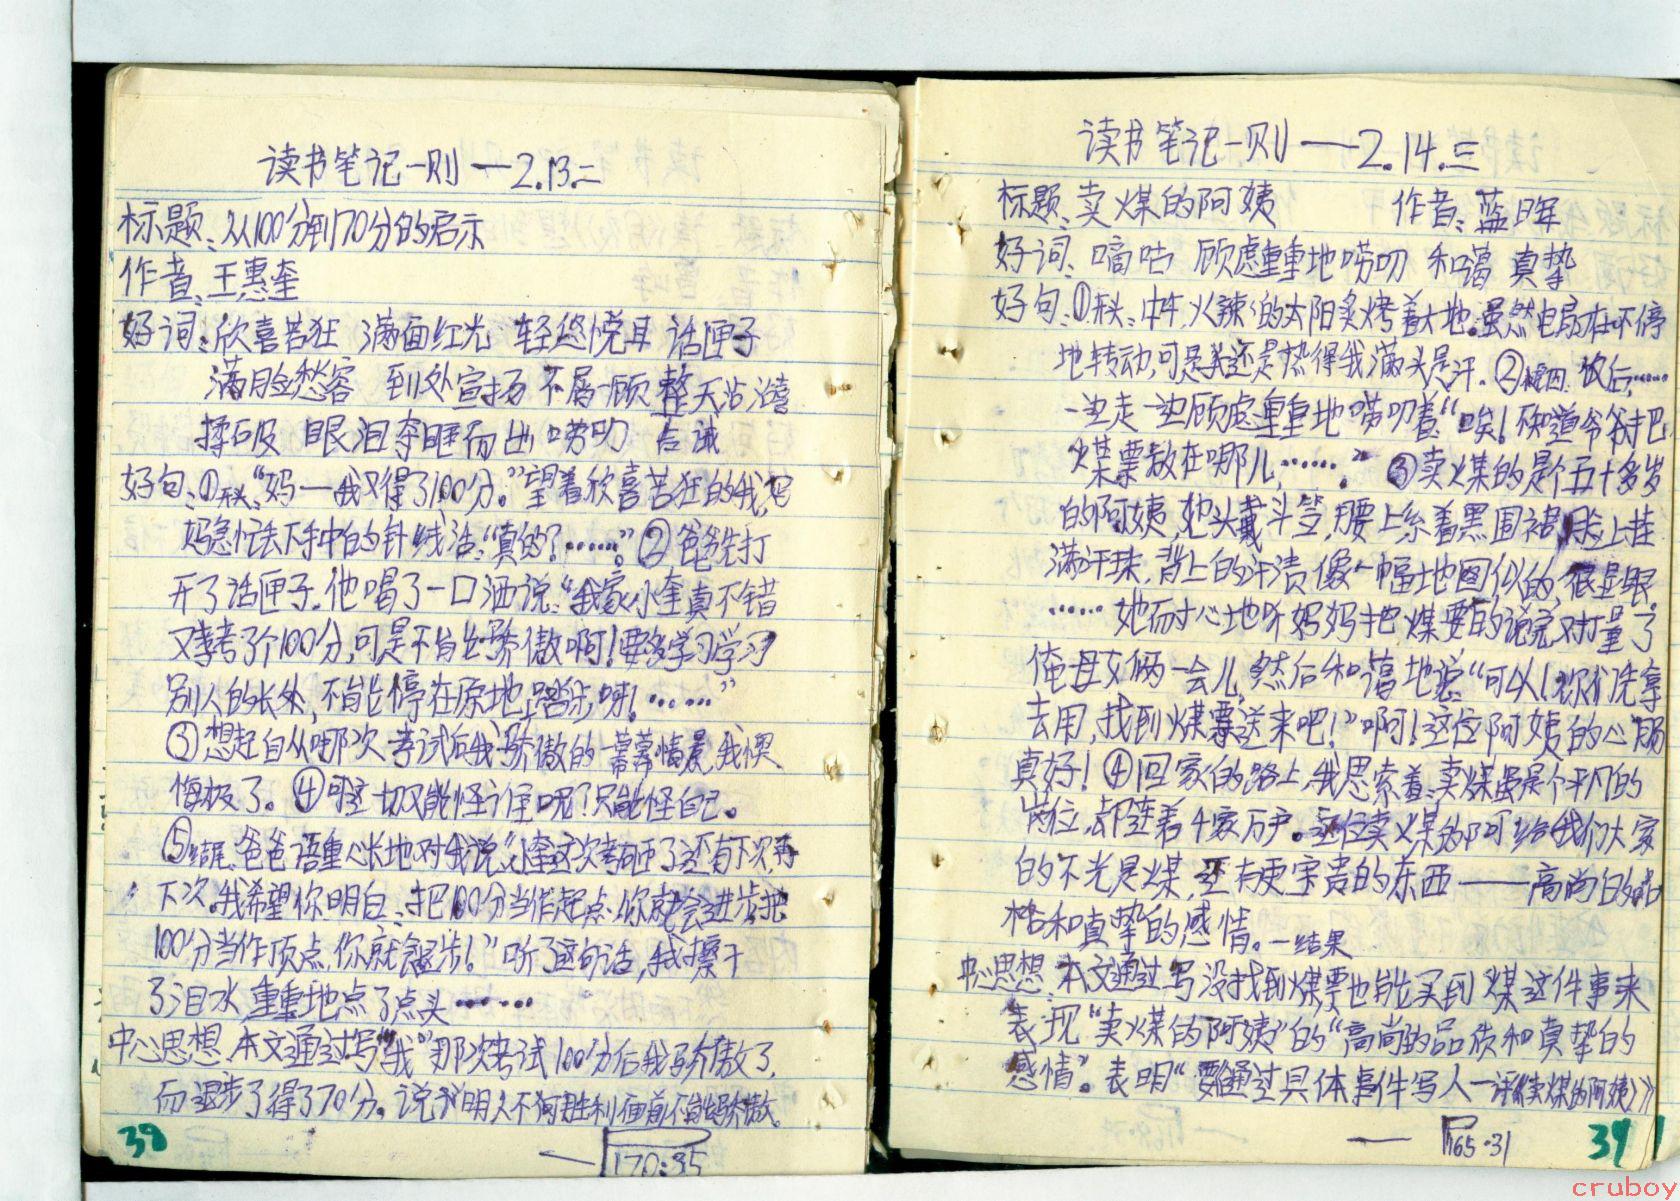 读书笔记一则——2.13.二
标题:从100分到70分的启示
作者:王惠奎
好词:欣喜若狂 满面红光 轻悠悦耳 话匣子
满脸愁容 到处宣扬 不屑一顾 整天沾沾自喜
揉 眼泪夺眶而出 唠叨 告诫
好句:①开头:"妈——我又得了100分。"望着欣喜若狂的我,妈
妈急忙丢下手中的针线活:"真的?……"②爸爸先打
开了话匣子,他喝了一口酒说:"我家小奎真不错
又考了个100分,可是不能骄傲啊!要多学习学习
别人的长处,不能停在原地上踏步呀!……"
③想起自从哪次考试后我骄傲的一幕幕情景,我懊
悔极了。④可这一切又能怪谁呢?只能怪自己。
⑤结尾:爸爸语重心长地对我说"小奎这次考砸了还有下次,再
下次。我希望你明白:把100分当作起点,你就会进步,把
100分当作顶点,你就会退步!"听了这句话,我擦干
了泪水,重重地点了点头……
中心思想:本文通过写"我"那次考试100分后我骄傲了,
而退步了得了70分。说明人不何胜利面前不能骄傲。
38
—170:35
读书笔记一则——2.14.三
标题:卖煤的阿姨 作者:蓝晖
好词:嘀咕 顾虑重重地唠叨 和蔼 真挚
好句:①开头:中午,火辣辣的太阳炙烤着大地。虽然电扇在不停
地转动,可是还是热得我满头是汗。② 饭后,……
一边走一边顾虑重重地唠叨着:"唉!不知道爷爷把
煤票放在哪儿……" ③卖煤的是个五十多岁
的阿姨,她头戴斗笠,腰上系着黑围裙,脸上挂
满汗珠,背上的汗渍像一幅地图似的,很显眼。
……她耐心地听妈妈把煤票的说完,对打量了
俺母女俩一会儿,然后和蔼地说:"可以!你们先拿
去用,找到煤票送来吧!"啊!这位阿姨的心肠
真好!④回家的路上,我思索着:卖煤虽是个平凡的
岗位,却连着千家万户。这位卖煤的阿姨给我们大家
的不光是煤,还有更宝贵的东西——高尚的品
格和真挚的感情。—结果
中心思想:本文通过写没找到煤票也能买到煤这件事来
表现"卖煤的阿姨"的"高尚的品质和真挚的
感情"。表明"要能通过具体事件写人—评《卖煤的阿姨》》
—165·31
39
cruboy